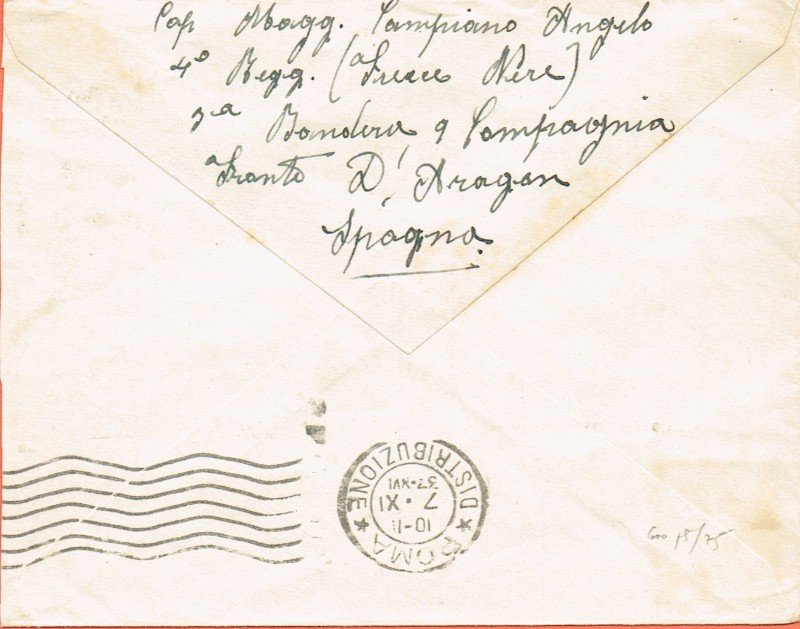 Cap Magg. Campiano Angelo
4° Regg. (Frecce Nere)
3ª Bandera 9 Compagnia
Fronte D'Aragon
Spagna.
ROMA
10-11
7 • XI
37 • XVI
* DISTRIBUZIONE *